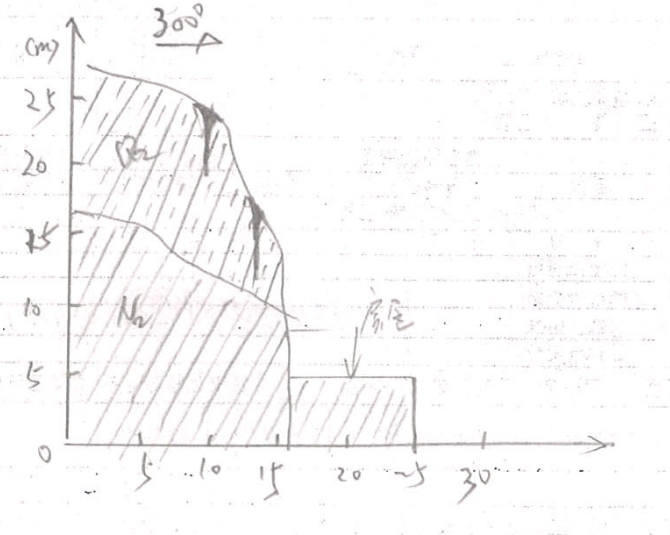 300°
(m)
25
20
15
10
5
0
N₂
房屋
5
10
15
20
25
30